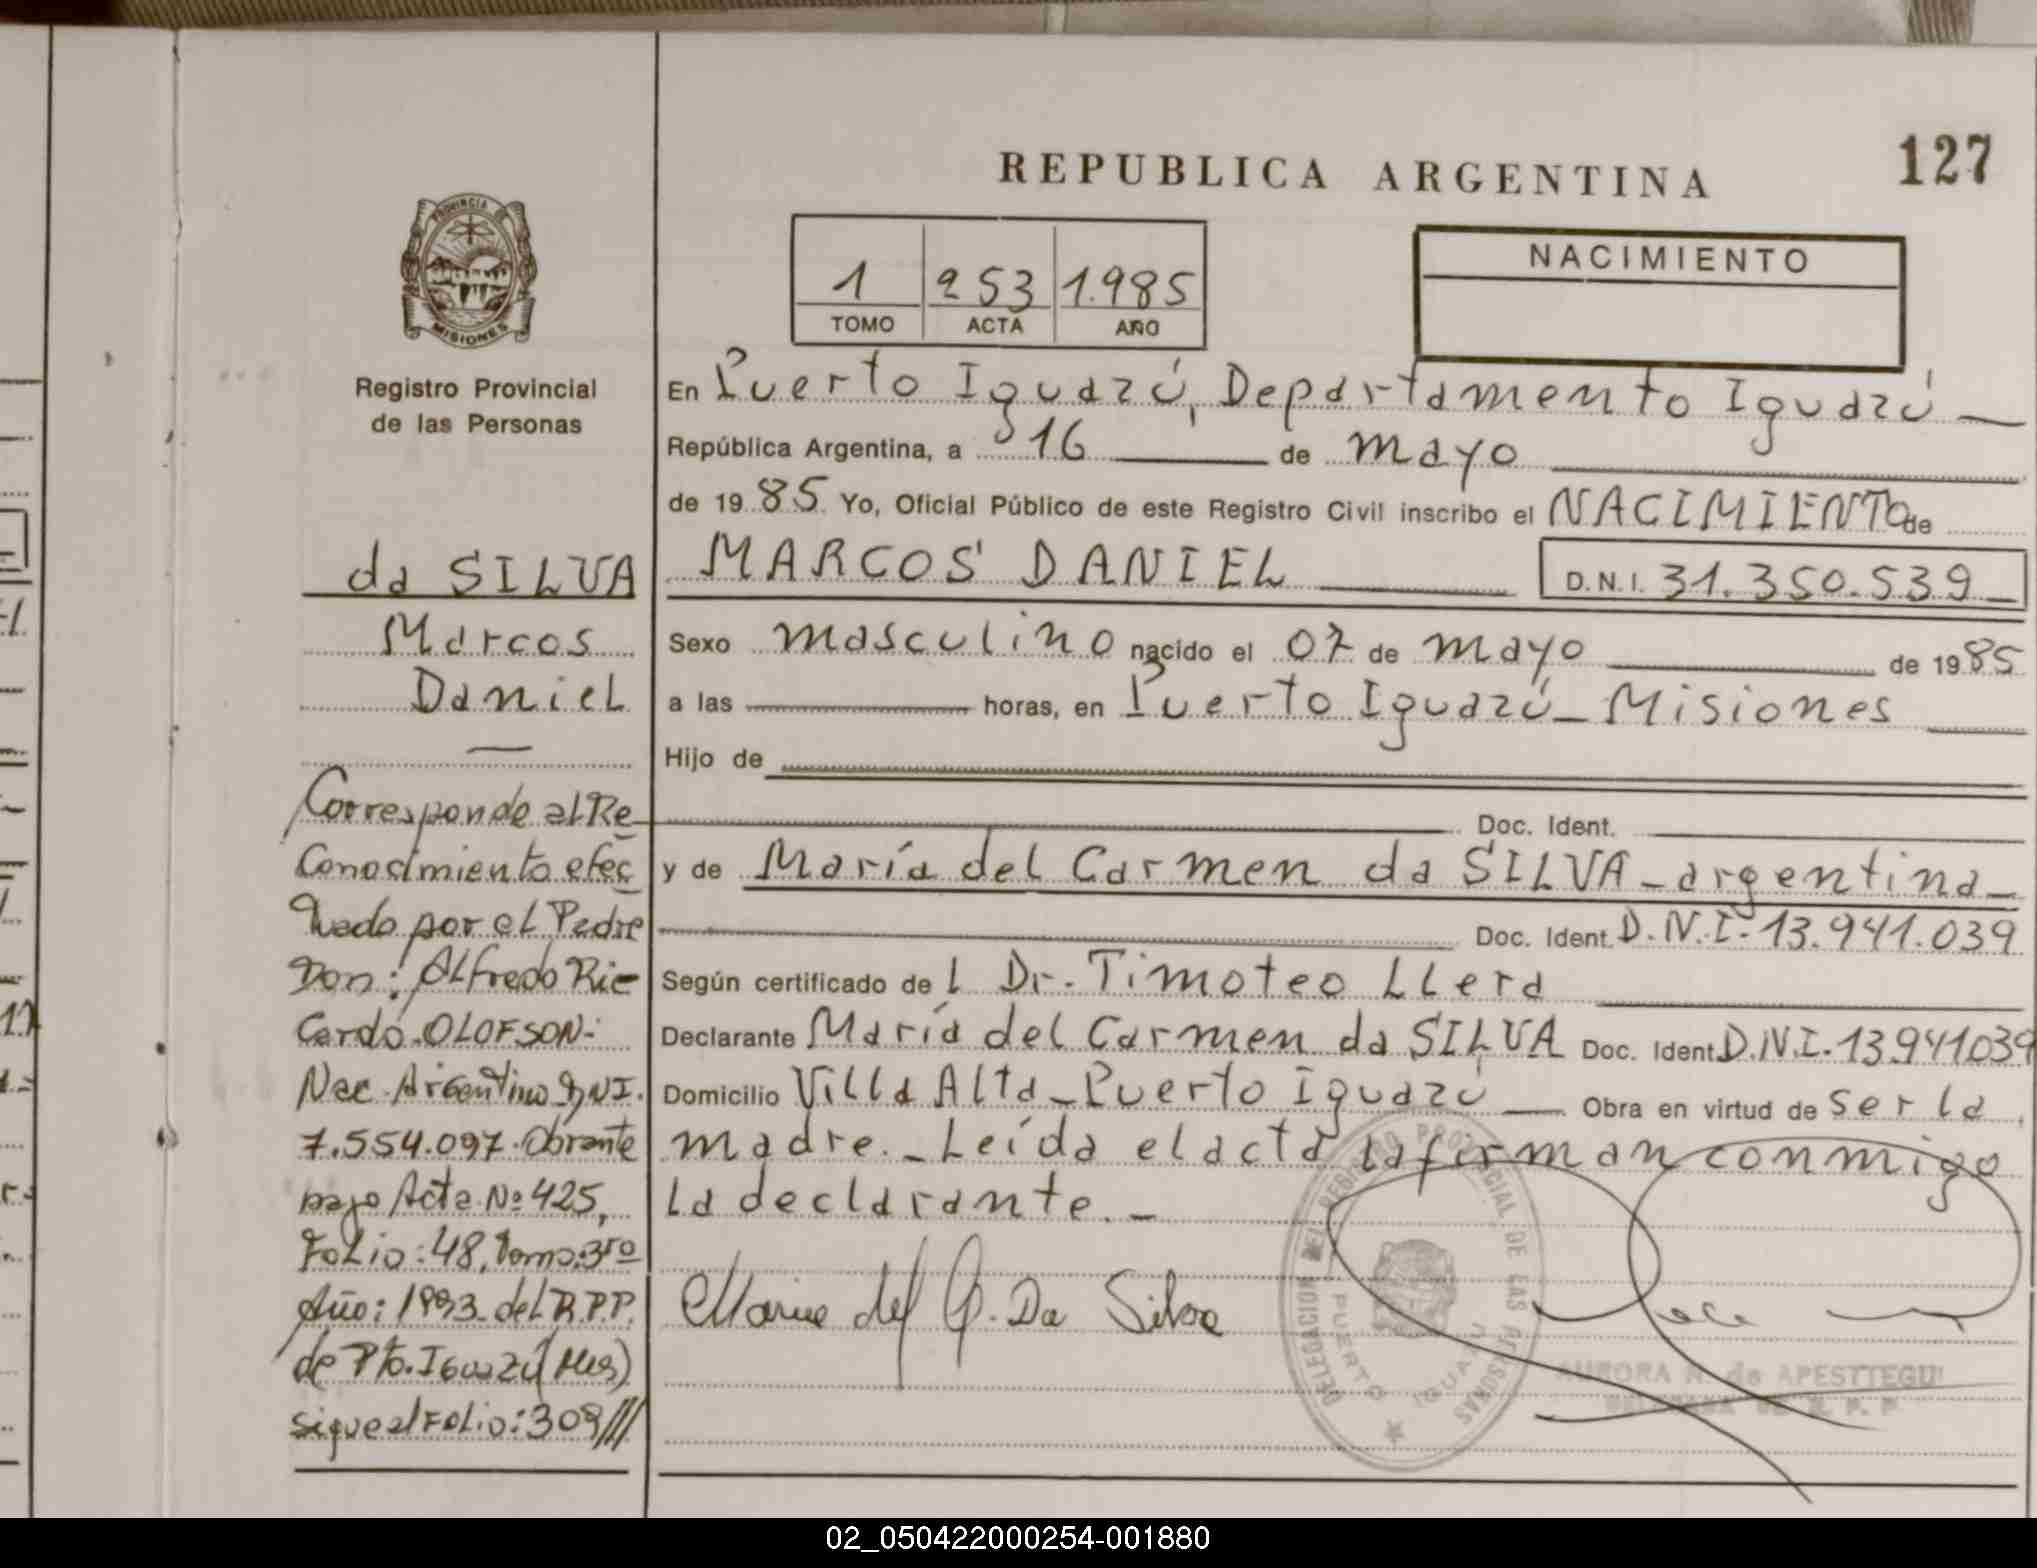 REPUBLICA ARGENTINA
127
PROVINCIA DE
MISIONES
Registro Provincial
de las Personas
1 253 1.985
TOMO ACTA AÑO
NACIMIENTO
En Puerto Iguazú, Departamento Iguazú
República Argentina, a 16 de mayo
de 1985 Yo, Oficial Público de este Registro Civil inscribo el NACIMIENTO de
MARCOS DANIEL D.N.I. 31.350.539
Sexo masculino nacido el 07 de mayo de 1985
a las horas, en Puerto Iguazú - Misiones
Hijo de
Doc. Ident.
y de María del Carmen da SILVA - argentina
Doc. Ident. D.N.I. 13.941.039
Según certificado del Dr. Timoteo LLera
Declarante María del Carmen da SILVA Doc. Ident. D.N.I. 13.941.039
Domicilio Villa Alta - Puerto Iguazú Obra en virtud de ser la
madre. - Leída el acta la firman conmigo
la declarante. -
Maria del C. Da Silva
DELEGACION DEL REGISTRO PROVINCIAL DE LAS PERSONAS
PUERTO IGUAZU
AURORA N. de APESTTEGUI
da SILVA
Marcos
Daniel
Corresponde al Re
conocimiento efec
tuado por el Padre
Don: Alfredo Ric
cardo OLOFSON:
Nac. Argentino D.N.I.
7.554.097. Obrante
bajo Acta Nº 425,
Folio: 48, Tomo: 3ro
Año: 1993 del R.P.P.
de Pto. Iguazú (Mis)
sigue al Folio: 309///
02_050422000254-001880